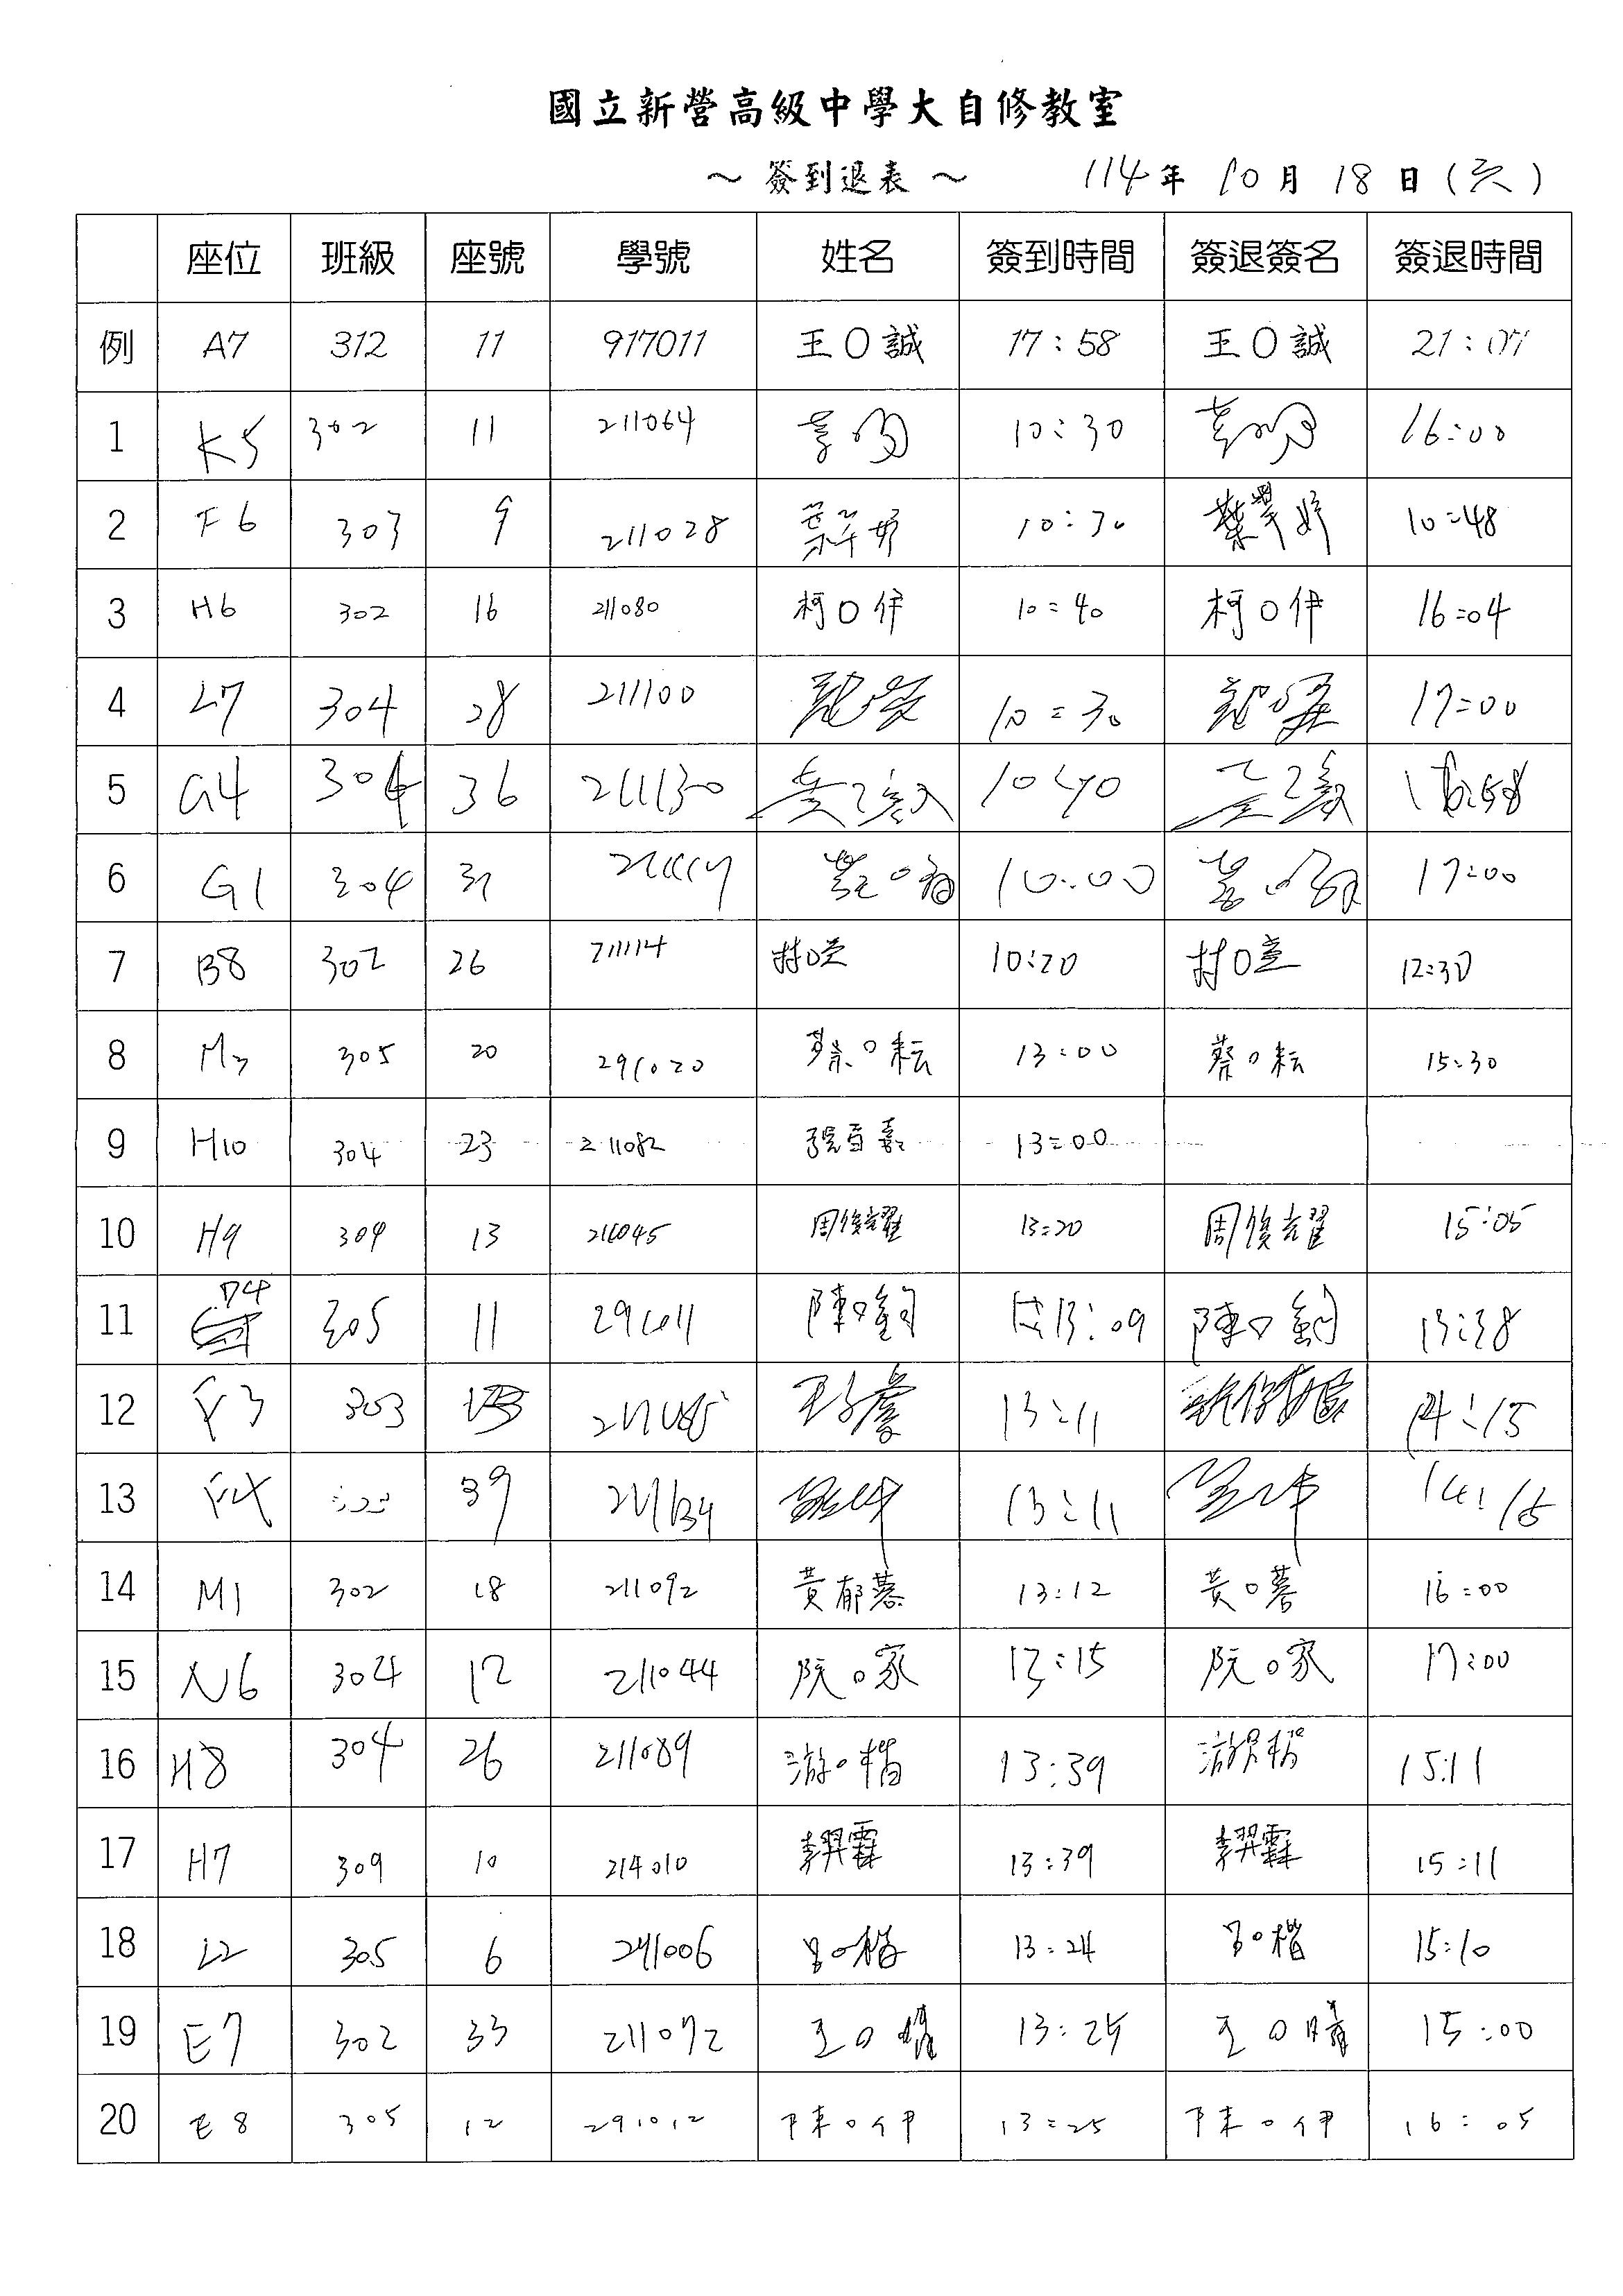 國立新營高級中學大自修教室
～ 簽到退表 ～ 114年 10月 18日(六)
座位 班級 座號 學號 姓名 簽到時間 簽退簽名 簽退時間
例 A7 312 11 917011 王〇誠 17:58 王〇誠 21:07
1 K5 302 11 211064 10:30 16:00
2 F6 303 9 211028 10:30 葉 10:48
3 H6 302 16 211080 柯〇伊 10:40 柯〇伊 16:04
4 L7 304 28 211100 10:30 17:00
5 G4 304 36 211130 10:40
6 G1 304 31 10:00 17:00
7 B8 302 26 211114 10:20 12:30
8 M3 305 20 291020 蔡〇耘 13:00 蔡〇耘 15:30
9 H10 304 23 211082 13:00
10 H9 304 13 211045 周俊耀 13:20 周俊耀 15:05
11 D4 305 11 291011 陳〇錡 13:09 陳〇錡 13:38
12 F3 303 13:11 14:15
13 F4 39 13:11 14:15
14 M1 302 18 211092 黃郁蓁 13:12 黃〇蓁 16:00
15 N6 304 12 211044 阮〇家 13:15 阮〇家 17:00
16 H8 304 26 211089 游〇楷 13:39 15:11
17 H7 309 10 214010 李羿霖 13:39 李羿霖 15:11
18 L2 305 6 291006 呂〇楷 13:24 呂〇楷 15:10
19 E7 302 33 211072 王〇晴 13:25 王〇晴 15:00
20 E8 305 12 291012 陳〇伊 13:25 陳〇伊 16:05